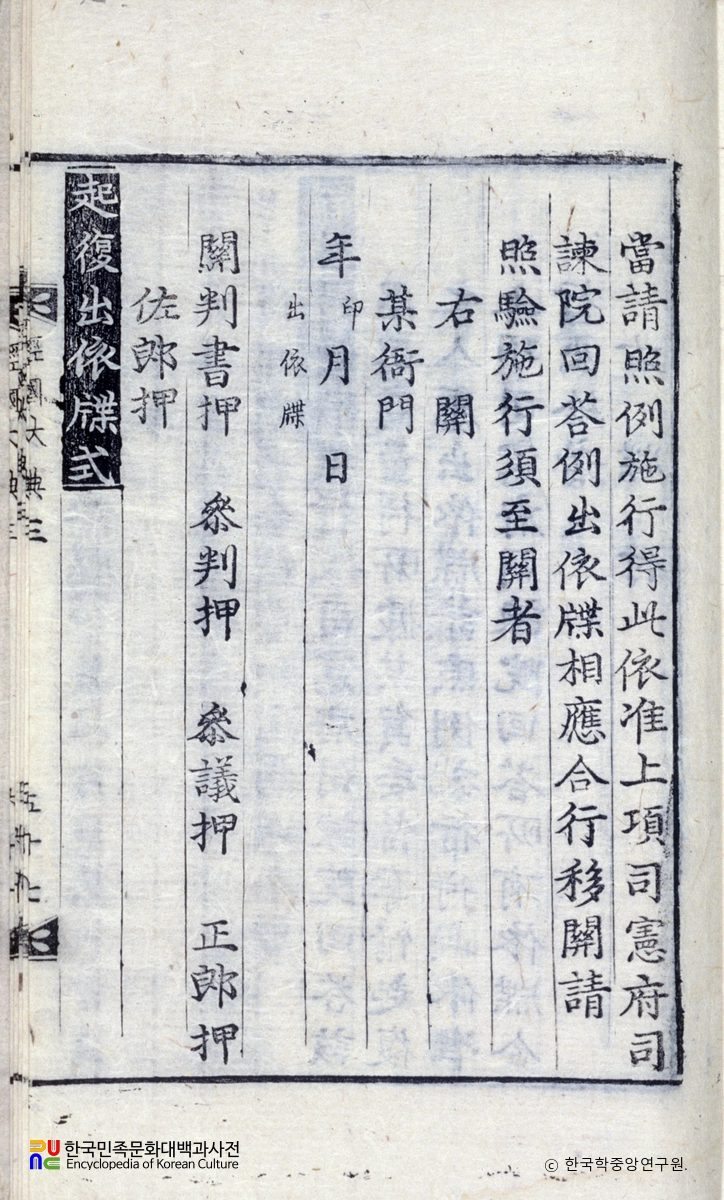 當請照例施行得此依准上項司憲府司
諫院回荅例出依牒相應合行移關請
照驗施行須至關者
右關
某衙門
年印月日
出依牒
關判書押 叅判押 叅議押 正郎押
佐郎押
起復出依牒式
經國大典三
한국민족문화대백과사전
Encyclopedia of Korean Culture
ⓒ 한국학중앙연구원.